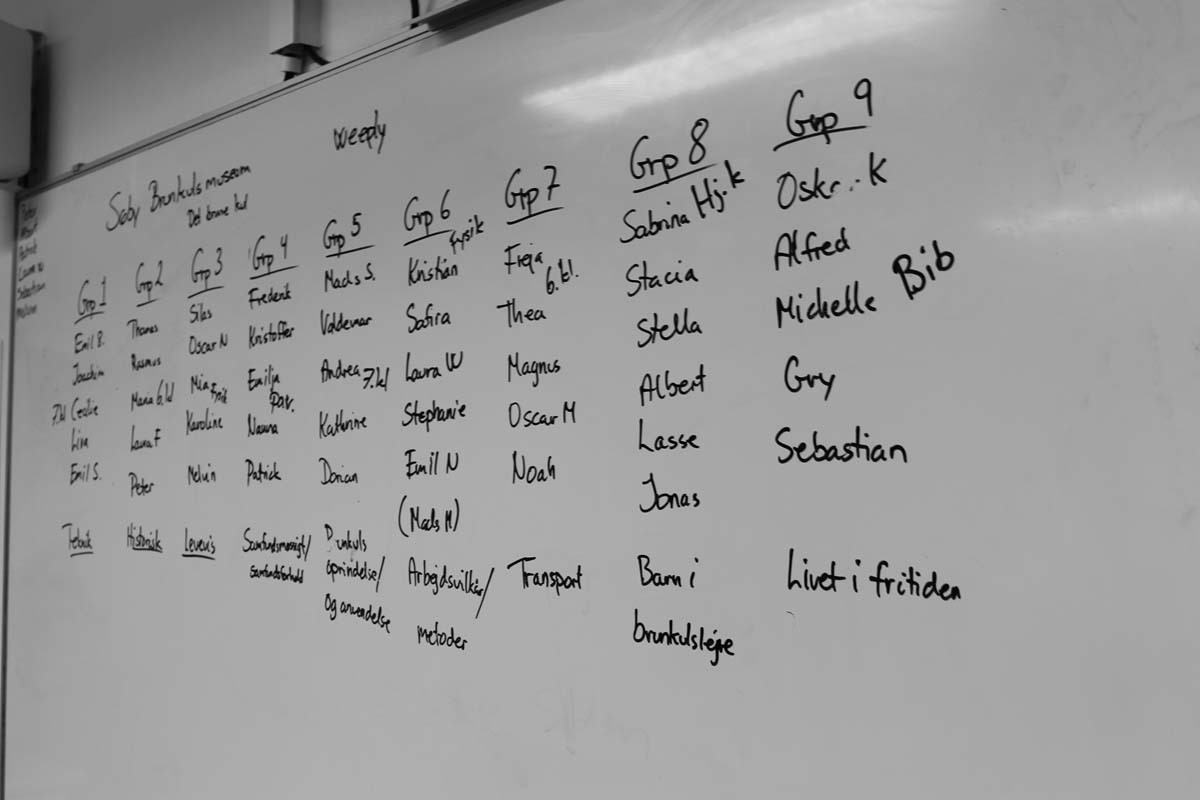 weeply
Søby Brunkulsmuseum
Det brune kul
Peter
Patrick
Laura W
Sebastian
Grp 1
Emil B.
Joachim
7.kl Cecilie
Liva
Emil S.
Teknik
Grp 2
Thomas
Rasmus
Mana 6.kl
Laura F
Peter
Historisk
Grp 3
Silas
Oscar N
Mia Fysik
Karoline
Melvin
Levevis
Grp 4
Frederik
Kristoffer
Emilja
Pav.
Nanna
Patrick
Samfundsmæssigt/
samfundsforhold
Grp 5
Mads S.
Valdemar
Andrea 7.kl
Kathrine
Dorian
Brunkuls
oprindelse/
og anvendelse
Grp 6
fysik
Kristian
Safira
Laura W
Stephanie
Emil N
(Mads M)
Arbejdsvilkår/
metoder
Grp 7
Freja
6.kl.
Thea
Magnus
Oscar M
Noah
Transport
Grp 8
Sabrina Hj.k
Stacia
Stella
Albert
Lasse
Jonas
Børn i
brunkulslejre
Grp 9
K
Alfred
Michelle Bib
Gry
Sebastian
Livet i fritiden